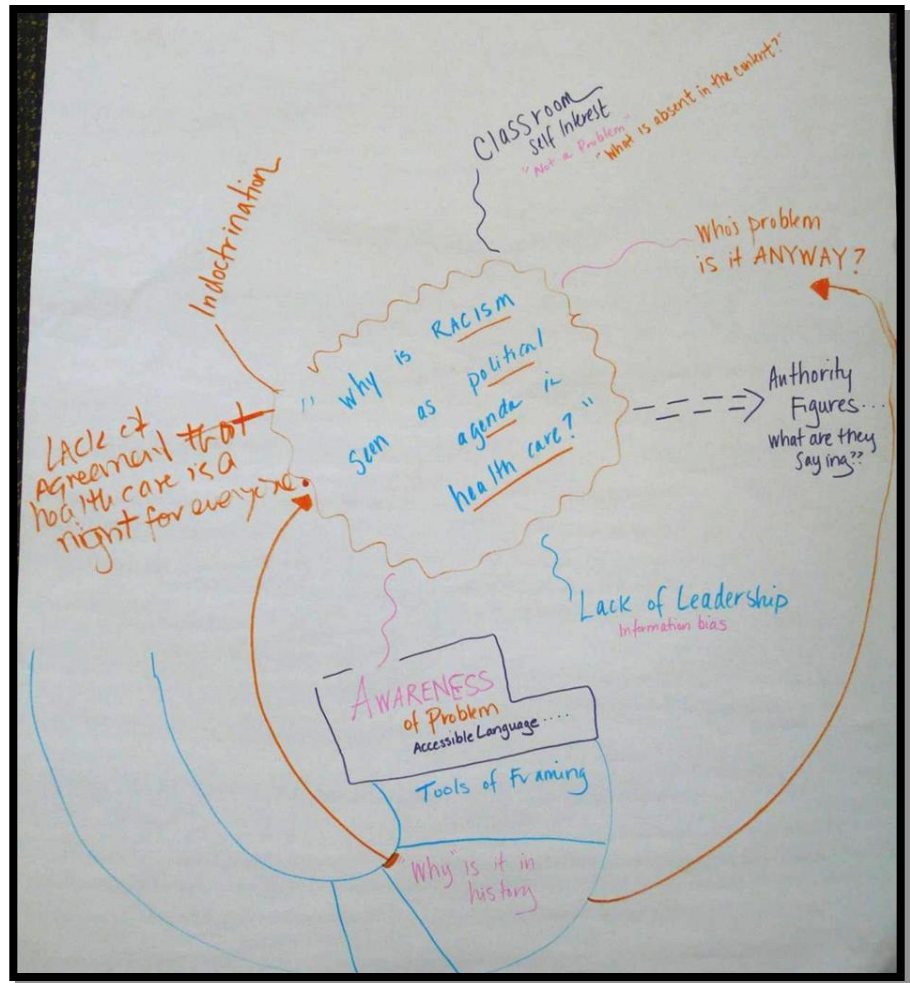 Classroom
Self Interest
"Not a Problem"
"What is absent in the content?"
Indoctrination
Who's problem
is it ANYWAY?
"Why is RACISM
seen as political
agenda in
health care?"
Authority
Figures...
what are they
saying??
LAck of
Agreement that
health care is a
right for everyone.
Lack of Leadership
Information bias
AWARENESS
of Problem
Accessible Language....
Tools of Framing
"Why" is it in
history